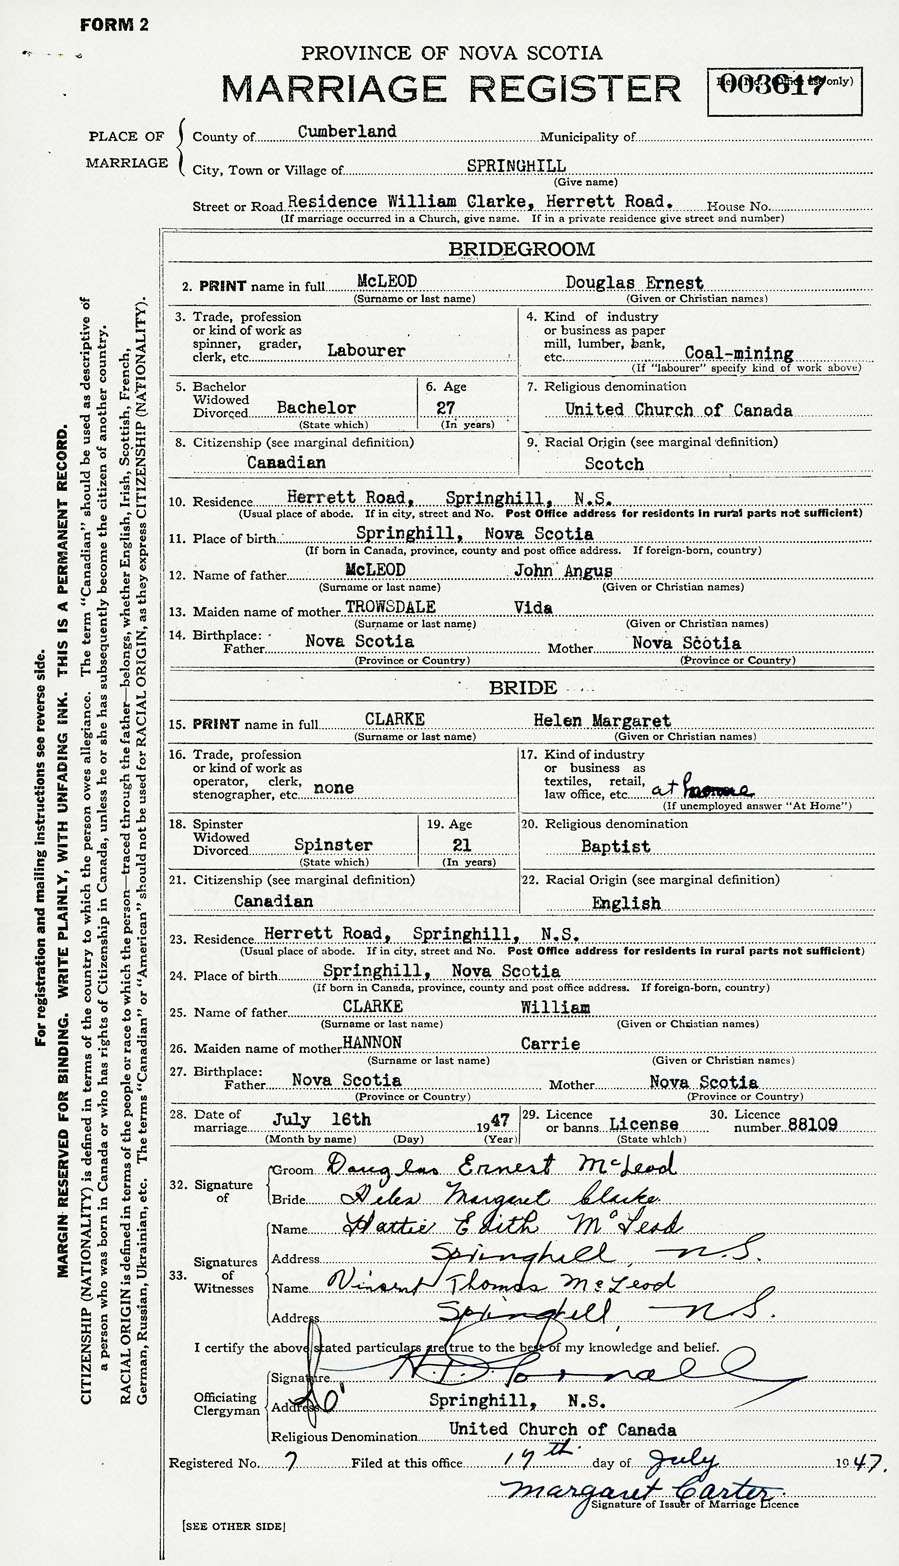 FORM 2
PROVINCE OF NOVA SCOTIA
MARRIAGE REGISTER
003617 only)
PLACE OF MARRIAGE
County of Cumberland Municipality of
City, Town or Village of SPRINGHILL
(Give name)
Street or Road Residence William Clarke, Herrett Road. House No.
(If marriage occurred in a Church, give name. If in a private residence give street and number)
BRIDEGROOM
2. PRINT name in full McLEOD Douglas Ernest
(Surname or last name) (Given or Christian names)
3. Trade, profession
or kind of work as
spinner, grader,
clerk, etc. Labourer
4. Kind of industry
or business as paper
mill, lumber, bank,
etc. Coal-mining
(If "labourer" specify kind of work above)
5. Bachelor
Widowed
Divorced Bachelor
(State which)
6. Age
27
(In years)
7. Religious denomination
United Church of Canada
8. Citizenship (see marginal definition)
Canadian
9. Racial Origin (see marginal definition)
Scotch
10. Residence Herrett Road, Springhill, N.S.
(Usual place of abode. If in city, street and No. Post Office address for residents in rural parts not sufficient)
11. Place of birth Springhill, Nova Scotia
(If born in Canada, province, county and post office address. If foreign-born, country)
12. Name of father McLEOD John Angus
(Surname or last name) (Given or Christian names)
13. Maiden name of mother TROWSDALE Vida
(Surname or last name) (Given or Christian names)
14. Birthplace:
Father Nova Scotia Mother Nova Scotia
(Province or Country) (Province or Country)
BRIDE
15. PRINT name in full CLARKE Helen Margaret
(Surname or last name) (Given or Christian names)
16. Trade, profession
or kind of work as
operator, clerk,
stenographer, etc. none
17. Kind of industry
or business as
textiles, retail,
law office, etc. at home
(If unemployed answer "At Home")
18. Spinster
Widowed
Divorced Spinster
(State which)
19. Age
21
(In years)
20. Religious denomination
Baptist
21. Citizenship (see marginal definition)
Canadian
22. Racial Origin (see marginal definition)
English
23. Residence Herrett Road, Springhill, N.S.
(Usual place of abode. If in city, street and No. Post Office address for residents in rural parts not sufficient)
24. Place of birth Springhill, Nova Scotia
(If born in Canada, province, county and post office address. If foreign-born, country)
25. Name of father CLARKE William
(Surname or last name) (Given or Christian names)
26. Maiden name of mother HANNON Carrie
(Surname or last name) (Given or Christian names)
27. Birthplace:
Father Nova Scotia Mother Nova Scotia
(Province or Country) (Province or Country)
28. Date of
marriage July 16th 1947
(Month by name) (Day) (Year)
29. Licence
or banns License
(State which)
30. Licence
number 88109
32. Signature of
Groom Douglas Ernest McLeod
Bride Helen Margaret Clarke
33. Signatures of Witnesses
Name Hattie Edith McLeod
Address Springhill, N.S.
Name Vinsent Thomas McLeod
Address Springhill, N.S.
I certify the above stated particulars are true to the best of my knowledge and belief.
Officiating Clergyman
Signature
Address Springhill, N.S.
Religious Denomination United Church of Canada
Registered No. 7 Filed at this office 17th day of July 1947.
Margaret Carter
Signature of Issuer of Marriage Licence
[SEE OTHER SIDE]
For registration and mailing instructions see reverse side.
MARGIN RESERVED FOR BINDING. WRITE PLAINLY, WITH UNFADING INK. THIS IS A PERMANENT RECORD.
CITIZENSHIP (NATIONALITY) is defined in terms of the country to which the person owes allegiance. The term "Canadian" should be used as descriptive of
a person who was born in Canada or who has rights of Citizenship in Canada, unless he or she has subsequently become the citizen of another country.
RACIAL ORIGIN is defined in terms of the people or race to which the person—traced through the father—belongs, whether English, Irish, Scottish, French,
German, Russian, Ukrainian, etc. The terms "Canadian" or "American" should not be used for RACIAL ORIGIN, as they express CITIZENSHIP (NATIONALITY).